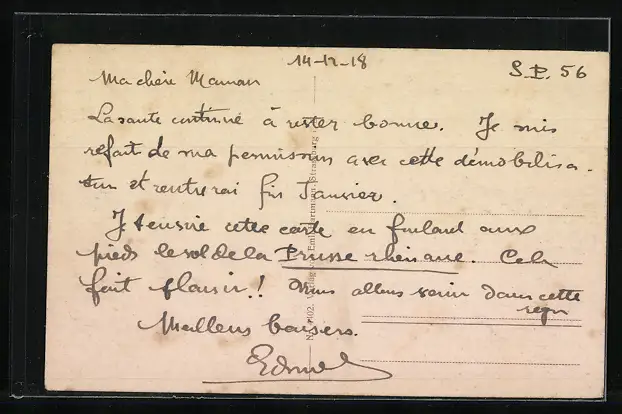 14-12-18
S.P. 56
Ma chère Maman
La santé continue à rester bonne. Je suis
refait de ma permission avec cette démobilisa-
tion et rentrerai fin Janvier.
Je t'envoie cette carte en foulant aux
pieds le sol de la Prusse rhénane. Cela
fait plaisir! Nous allons venir dans cette
Meilleurs baisers.
Edmond
Verlag von Emil Hartmann, Strassburg i.